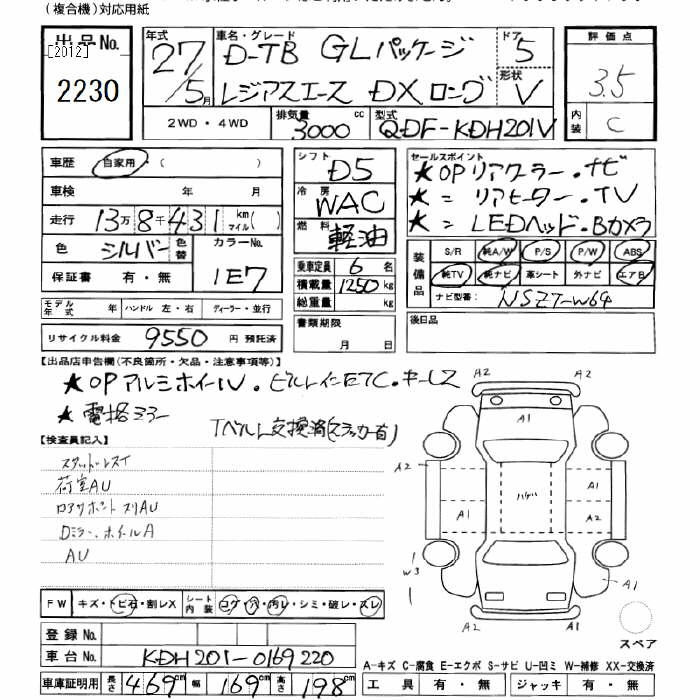 (複合機)対応用紙
出品No. [2012] 2230
年式 27/5月
車名・グレード D-TB GLパッケージ
レジアスエース DXロング
ドア 5
形状 V
評価点 3.5
内装 C
2WD・4WD 排気量 3000 cc 型式 QDF-KDH201V
車歴 自家用・( )
車検 年 月
走行 13万8千431 km マイル( )
色 シルバー 色替 カラーNo. 1E7
保証書 有・無
モデル年式 年 ハンドル 左・右 ディーラー・並行
リサイクル料金 9550 円 預託済
シフト D5
冷房 WAC
燃料 軽油
乗車定員 6 名
積載量 1250 kg
総重量 kg
書類期限 月 日
セールスポイント
★OPリアクーラー・ナビ
★ 〃 リアヒーター・TV
★ 〃 LEDヘッド・Bカメラ
装備品 S/R 純A/W P/S P/W ABS
純TV 純ナビ 革シート 外ナビ エアB
ナビ型番: NSZT-W64
後日品
【出品店申告欄(不良箇所・欠品・注意事項等)】
★OPアルミホイール・ビルトインETC・キーレス
★電格ミラー
Tベルト交換済(ステッカー有)
【検査員記入】
荷室AU
ロアサポート スリAU
Dミラー、ホイールA
AU
FW キズ・トビ石・割レX シート内装 コゲ・穴・汚レ・シミ・破レ・スレ
登録No.
車台No. KDH201-0169220
車庫証明用 長さ 469 cm 幅 169 cm 高さ 198 cm
A2 A2
A1
A2
ハゲ
A1
A1
A2
W3
A1
A2 A2
スペア
A-キズ C-腐食 E-エクボ S-サビ U-凹ミ W-補修 XX-交換済
工具 有・無 ジャッキ 有・無